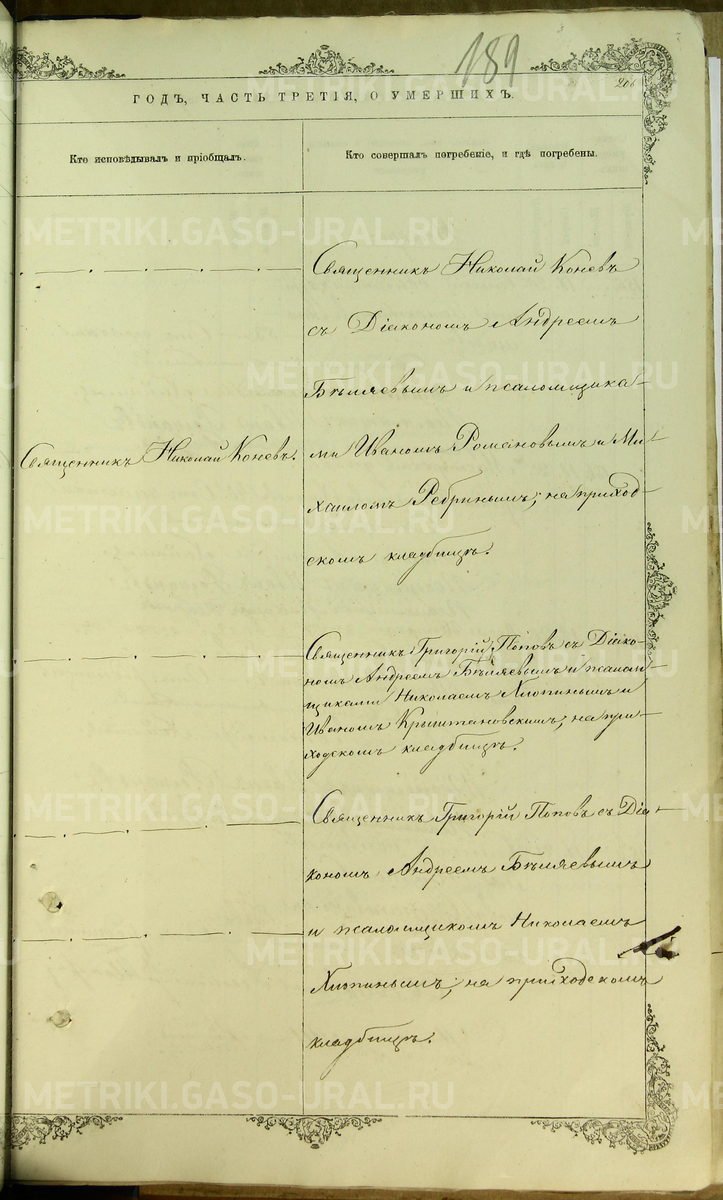 189
ГОДЪ, ЧАСТЬ ТРЕТІЯ, О УМЕРШИХЪ.
Кто исповѣдывалъ и пріобщалъ.
Кто совершалъ погребеніе, и гдѣ погребены.
Священникъ Николай Коневъ
съ Діакономъ Андреемъ
Бѣляевымъ и псаломщика-
Священникъ Николай Коневъ.
ми Иваномъ Романовымъ и Ми-
хаиломъ Ребринымъ; на приход-
скомъ кладбищѣ.
Священникъ Григорій Поповъ съ Діако-
номъ Андреемъ Бѣляевымъ и псалом-
щиками Николаемъ Хлопинымъ и
Иваномъ Крыштановскимъ; на при-
ходскомъ кладбищѣ.
Священникъ Григорій Поповъ съ Діа-
кономъ Андреемъ Бѣляевымъ
и псаломщикомъ Николаемъ
Хлопинымъ; на приходскомъ
кладбищѣ.
METRIKI.GASO-URAL.RU